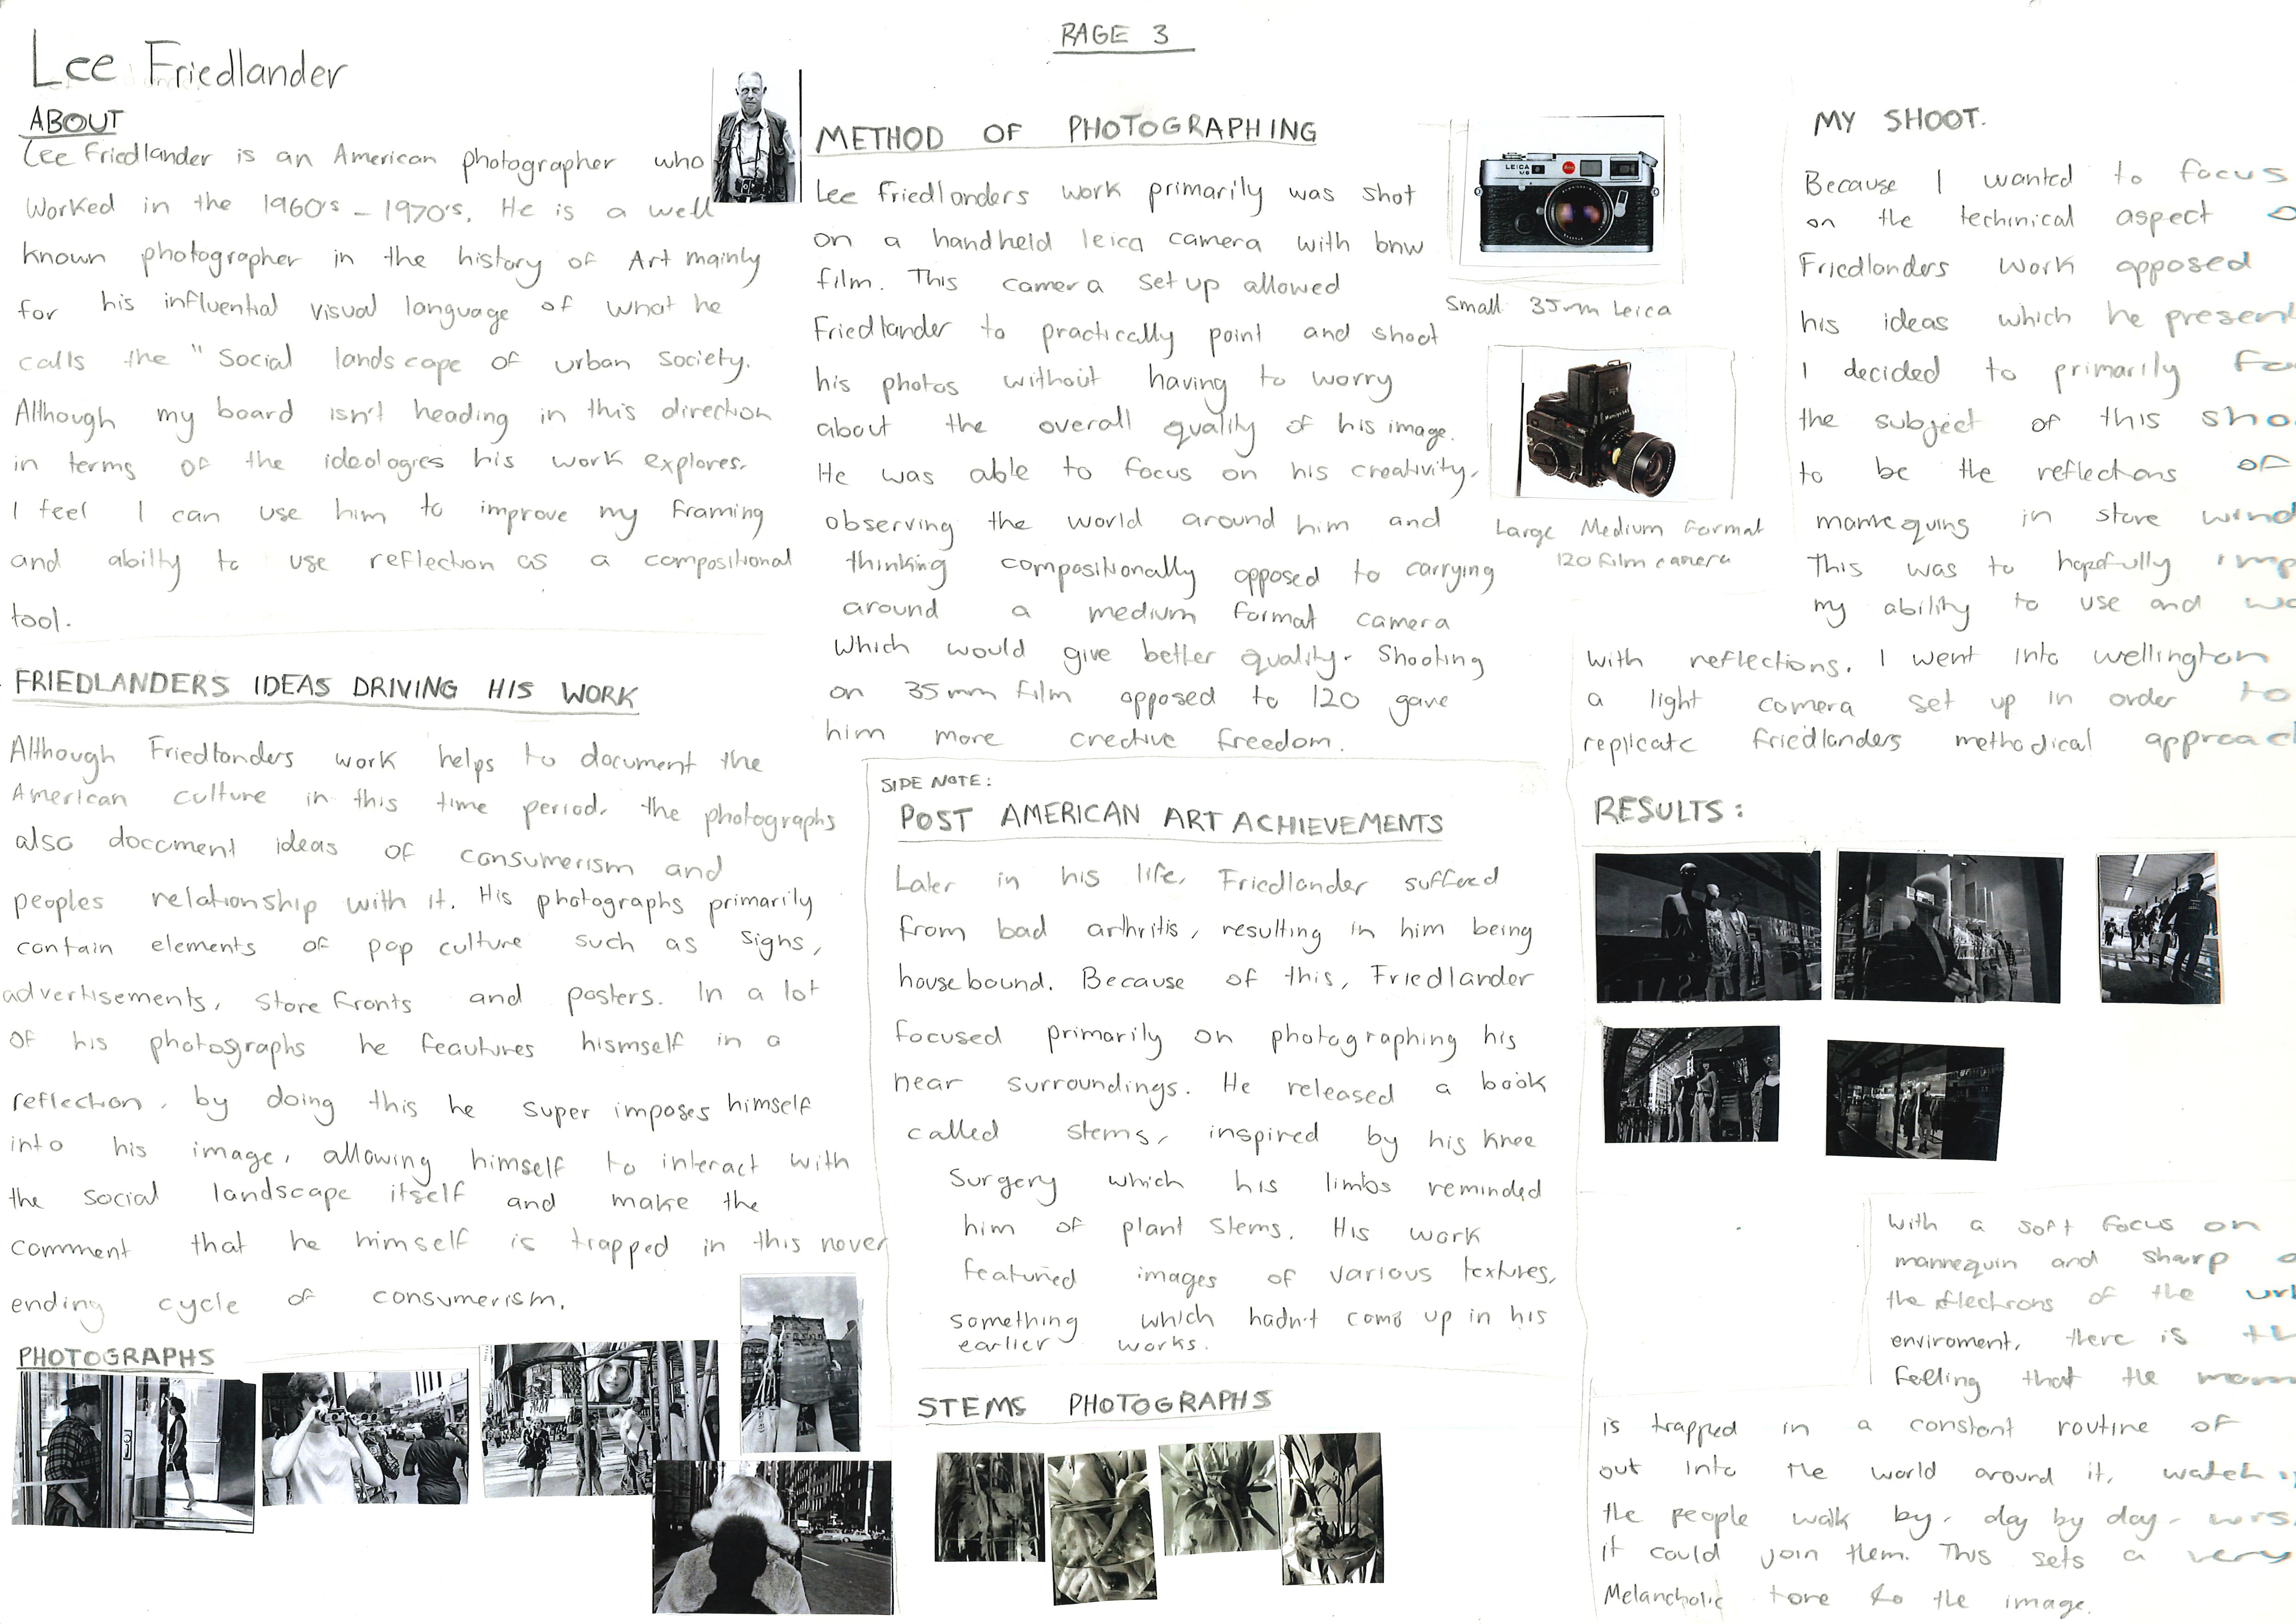 PAGE 3
Lee Friedlander
ABOUT
Lee Friedlander is an American photographer who
Worked in the 1960's - 1970's. He is a well
known photographer in the history of Art mainly
for his influential visual language of what he
calls the "Social landscape of urban society.
Although my board isn't heading in this direction
in terms of the ideologies his work explores.
I feel I can use him to improve my framing
and ability to use reflection as a compositional
tool.
FRIEDLANDERS IDEAS DRIVING HIS WORK
Although Friedlanders work helps to document the
American culture in this time period, the photographs
also document ideas of consumerism and
peoples relationship with it. His photographs primarily
contain elements of pop culture such as signs,
advertisements, store fronts and posters. In a lot
of his photographs he feautures hismself in a
reflection, by doing this he super imposes himself
into his image, allowing himself to interact with
the social landscape itself and make the
comment that he himself is trapped in this never
ending cycle of consumerism.
PHOTOGRAPHS
METHOD OF PHOTOGRAPHING
Lee Friedlanders work primarily was shot
on a handheld leica camera with bnw
film. This camera set up allowed
Friedlander to practically point and shoot
his photos without having to worry
about the overall quality of his image.
He was able to focus on his creativity,
observing the world around him and
thinking compositionally opposed to carrying
around a medium format camera
Which would give better quality. Shooting
on 35mm film opposed to 120 gave
him more creative freedom.
LEICA
M6
Small 35mm Leica
Large Medium format
120 film camera
SIDE NOTE:
POST AMERICAN ART ACHIEVEMENTS
Later in his life, Friedlander suffered
from bad arthritis, resulting in him being
housebound. Because of this, Friedlander
focused primarily on photographing his
near surroundings. He released a book
called stems, inspired by his knee
surgery which his limbs reminded
him of plant stems. His work
featured images of various textures,
something which hadn't come up in his
earlier works.
STEMS PHOTOGRAPHS
MY SHOOT.
Because I wanted to focus
on the techinical aspect
Friedlanders work opposed
his ideas which he present
I decided to primarily
the subject of this sho
to be the reflections of
mannequins in store wind
This was to hopefully imp
my ability to use and
with reflections. I went into wellington
a light camera set up in order to
replicate Friedlanders methodical approac
RESULTS:
With a soft focus on
mannequin and sharp
the reflections of the
enviroment, there is
feeling that the
is trapped in a constant routine of
out into the world around it, watch
the people walk by, day by day,
it could join them. This sets a very
Melancholic tone to the image.